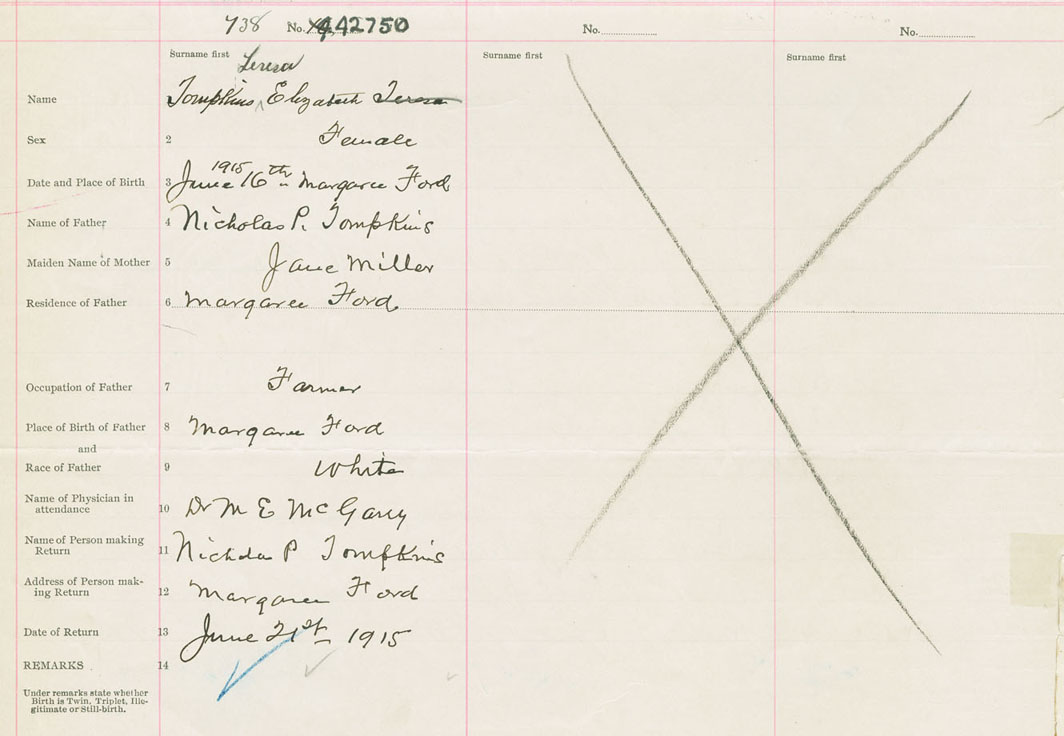 738 No. 442750 No. No.
Surname first Surname first Surname first
Teresa
Name Tompkins, Elizabeth Teresa
Sex 2 Female
1915
Date and Place of Birth 3 June 16th " Margaree Ford
Name of Father 4 Nicholas P. Tompkins
Maiden Name of Mother 5 Jane Miller
Residence of Father 6 Margaree Ford
Occupation of Father 7 Farmer
Place of Birth of Father 8 Margaree Ford
and
Race of Father 9 White
Name of Physician in
attendance 10 Dr M E McGarry
Name of Person making
Return 11 Nicholas P Tompkins
Address of Person mak-
ing Return 12 Margaree Ford
Date of Return 13 June 21st 1915
REMARKS 14
Under remarks state whether
Birth is Twin, Triplet, Ille-
gitimate or Still-birth.